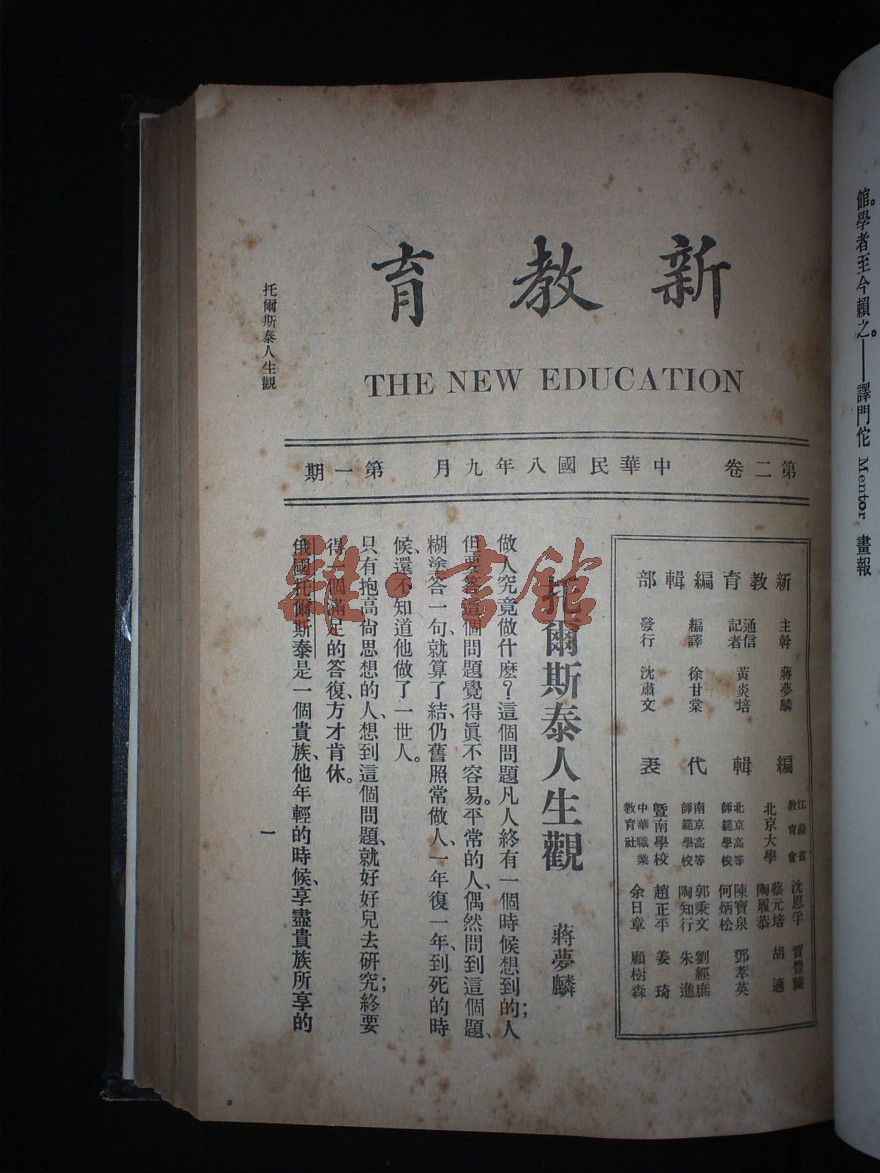 館。學者至今賴之。——譯門佗 Mentor 畫報
新教育
THE NEW EDUCATION
第二卷 中華民國八年九月 第一期
新教育編輯部
主幹 蔣夢麟
通信記者 黃炎培
編譯 徐甘棠
發行 沈肅文
編輯代表
江蘇省教育會 沈恩孚 賈豐臻
北京大學 蔡元培 胡適
陶履恭
北京高等師範學校 陳寶泉 鄧萃英
何炳松
南京高等師範學校 郭秉文 劉經庶
陶知行 朱進
暨南學校 趙正平 姜琦
中華職業教育社 余日章 顧樹森
托爾斯泰人生觀
蔣夢麟
做人究竟做什麽?這個問題凡人終有一個時候想到的;人
但要答這個問題覺得眞不容易。平常的人、偶然問到這個題、
糊塗答一句就算了結、仍舊照常做人、一年復一年、到死的時
候、還不知道他做了一世人。
只有抱高尙思想的人、想到這個問題、就好好兒去研究;終要
得一個滿足的答復、方才肯休。
俄國托爾斯泰是一個貴族、他年輕的時候、享盡貴族所享的
托爾斯泰人生觀
一
雜·書館